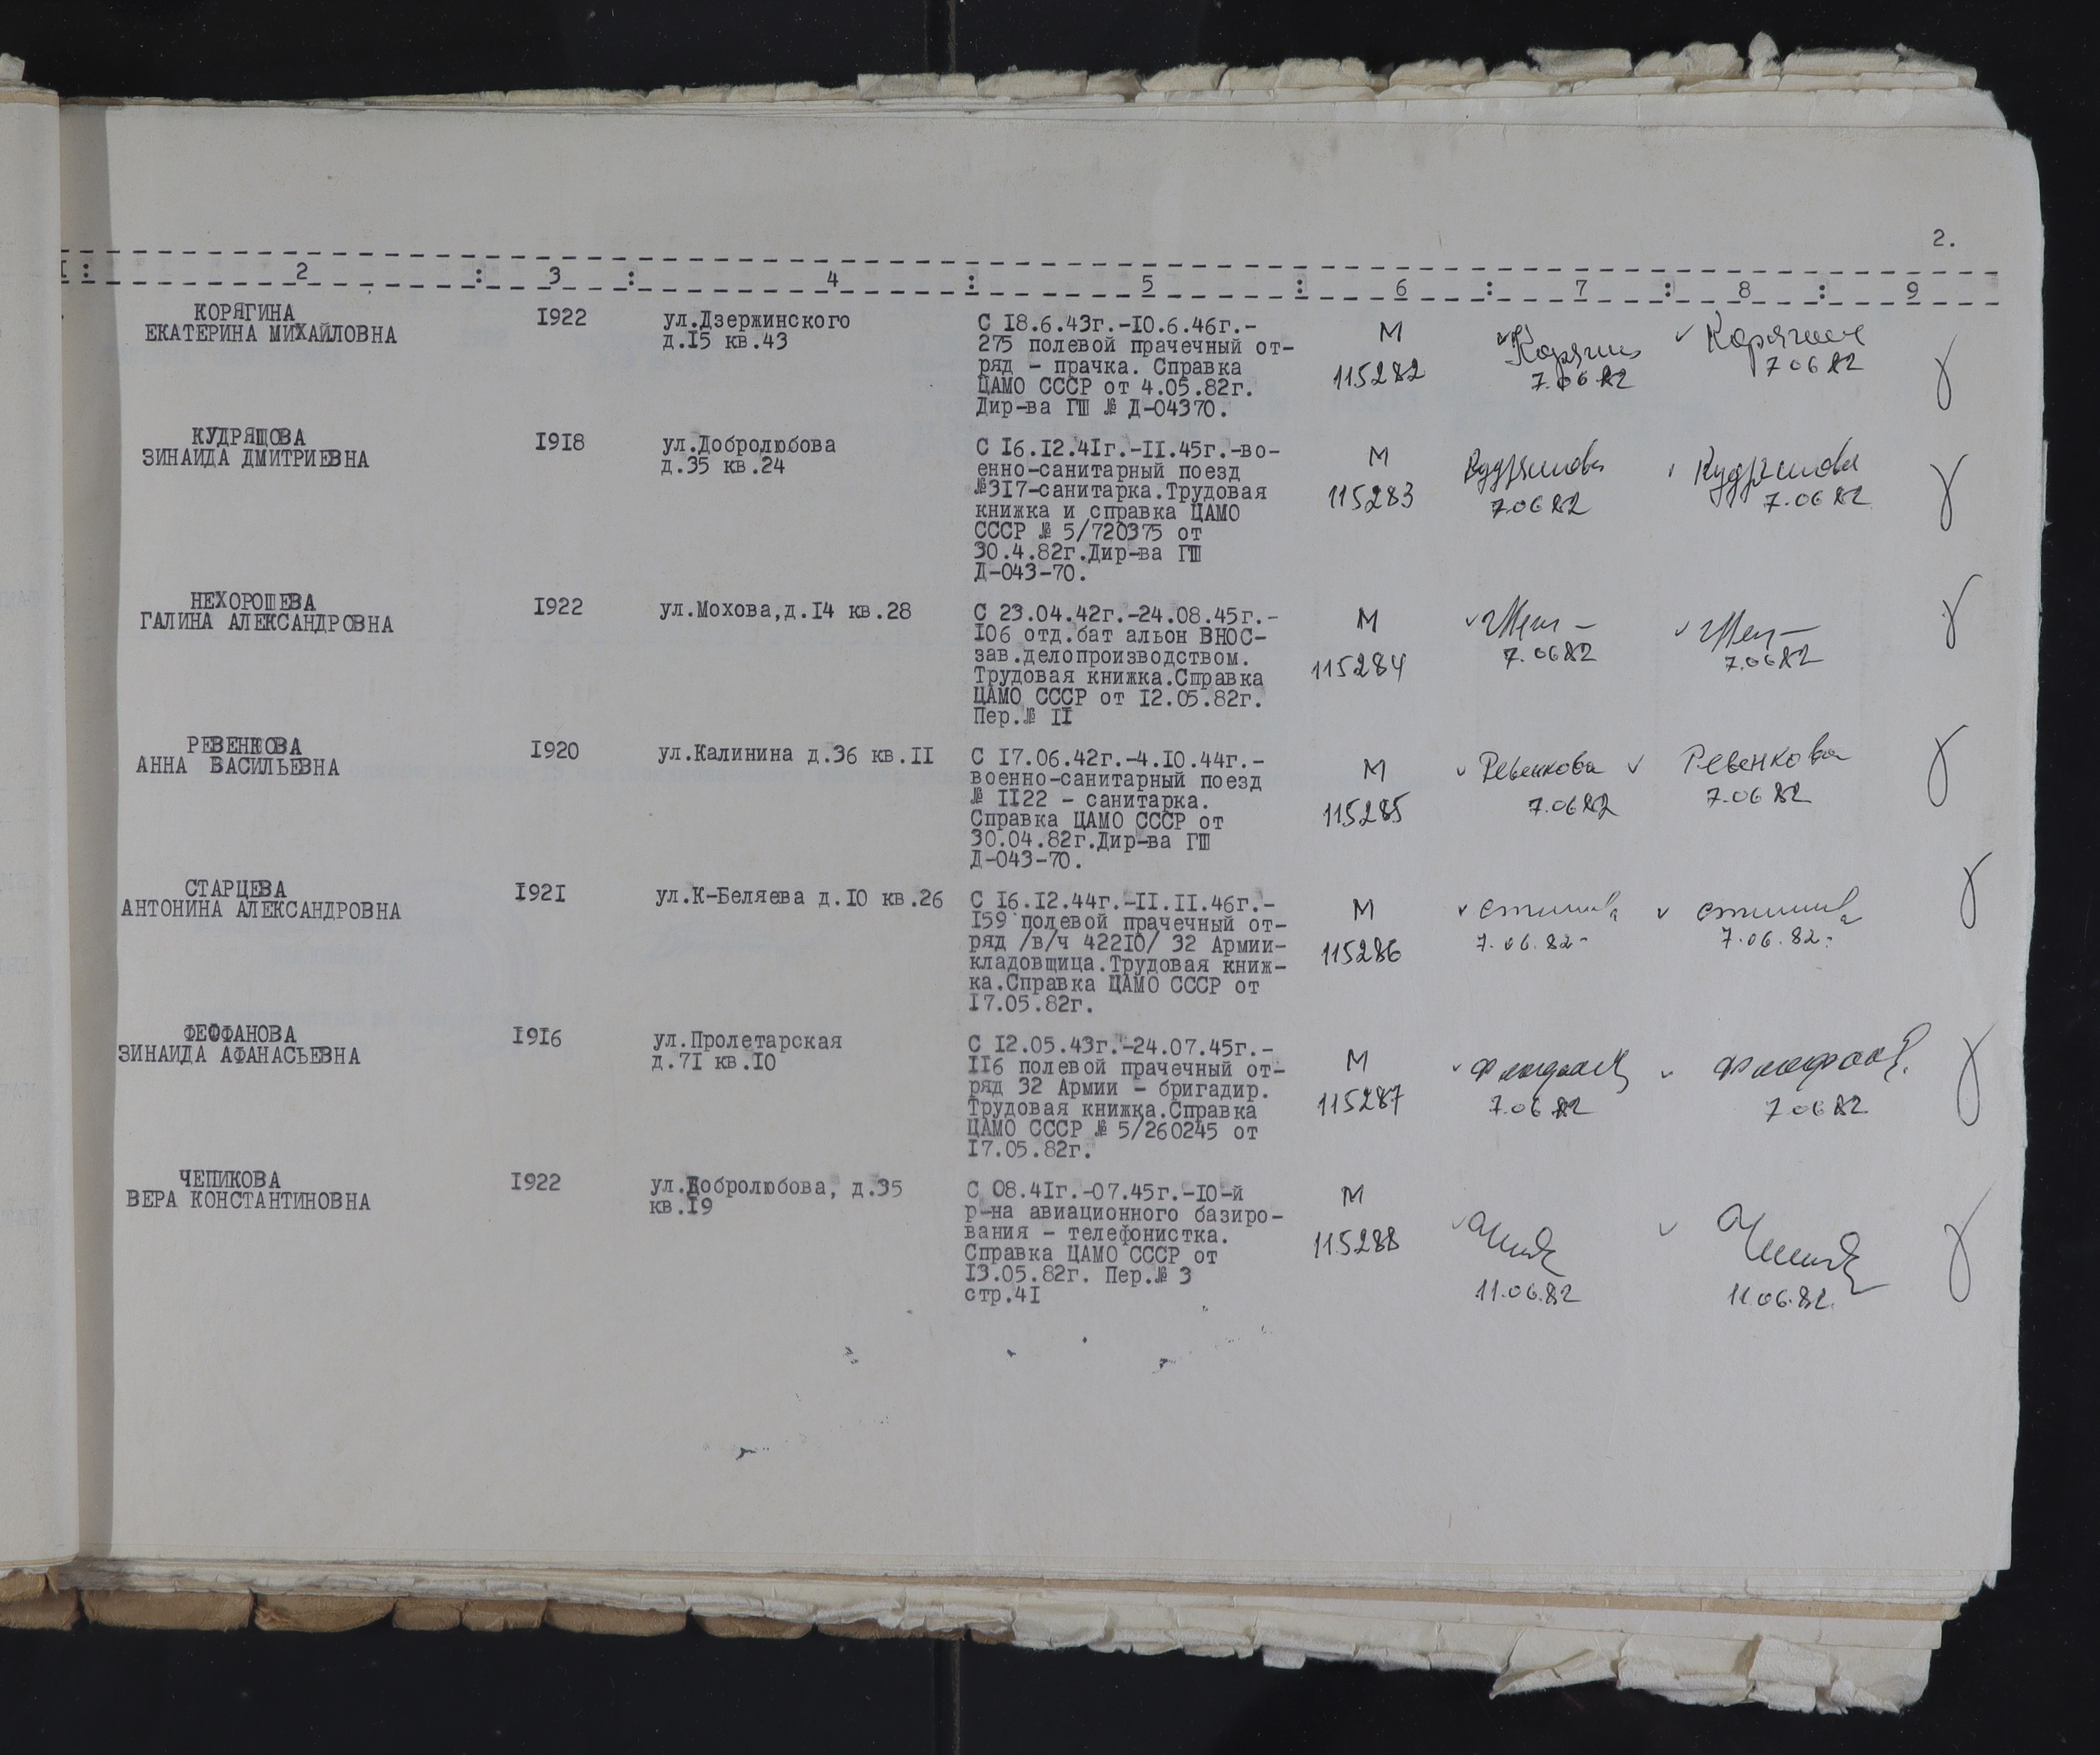 2.
I : 2 : 3 : 4 : 5 : 6 : 7 : 8 : 9
КОРЯГИНА
ЕКАТЕРИНА МИХАЙЛОВНА
I922
ул.Дзержинского
д.I5 кв.43
С I8.6.43г.-I0.6.46г.-
275 полевой прачечный от-
ряд - прачка. Справка
ЦАМО СССР от 4.05.82г.
Дир-ва ГШ № Д-04370.
М
115282
7.06 82
7 06 82
КУДРЯШОВА
ЗИНАИДА ДМИТРИЕВНА
I9I8
ул.Добролюбова
д.35 кв.24
С I6.I2.4Iг.-II.45г.-во-
енно-санитарный поезд
№3I7-санитарка.Трудовая
книжка и справка ЦАМО
СССР № 5/720375 от
30.4.82г.Дир-ва ГШ
Д-043-70.
М
115283
Кудряшова
7.06 82
Кудряшова
7.06 82
НЕХОРОШЕВА
ГАЛИНА АЛЕКСАНДРОВНА
I922
ул.Мохова,д.I4 кв.28
С 23.04.42г.-24.08.45г.-
I06 отд.бат альон ВНОС-
зав.делопроизводством.
Трудовая книжка.Справка
ЦАМО СССР от I2.05.82г.
Пер.№ II
М
115284
7.06 82
7.06 82
РЕВЕНКОВА
АННА ВАСИЛЬЕВНА
I920
ул.Калинина д.36 кв.II
С I7.06.42г.-4.I0.44г.-
военно-санитарный поезд
№ II22 - санитарка.
Справка ЦАМО СССР от
30.04.82г.Дир-ва ГШ
Д-043-70.
М
115285
Ревенкова
7.06 82
Ревенкова
7.06 82
СТАРЦЕВА
АНТОНИНА АЛЕКСАНДРОВНА
I92I
ул.К-Беляева д.I0 кв.26
С I6.I2.44г.-II.II.46г.-
I59 полевой прачечный от-
ряд /в/ч 422I0/ 32 Армии-
кладовщица.Трудовая книж-
ка.Справка ЦАМО СССР от
I7.05.82г.
М
115286
7.06.82
7.06.82.
ФЕОФАНОВА
ЗИНАИДА АФАНАСЬЕВНА
I9I6
ул.Пролетарская
д.7I кв.I0
С I2.05.43г.-24.07.45г.-
II6 полевой прачечный от-
ряд 32 Армии - бригадир.
Трудовая книжка.Справка
ЦАМО СССР № 5/260245 от
I7.05.82г.
М
115287
7.06 82
7.06 82
ЧЕПИКОВА
ВЕРА КОНСТАНТИНОВНА
I922
ул.Добролюбова, д.35
кв.I9
С 08.4Iг.-07.45г.-I0-й
р-на авиационного базиро-
вания - телефонистка.
Справка ЦАМО СССР от
I3.05.82г. Пер.№ 3
стр.4I
М
115288
11.06.82
11.06.82.